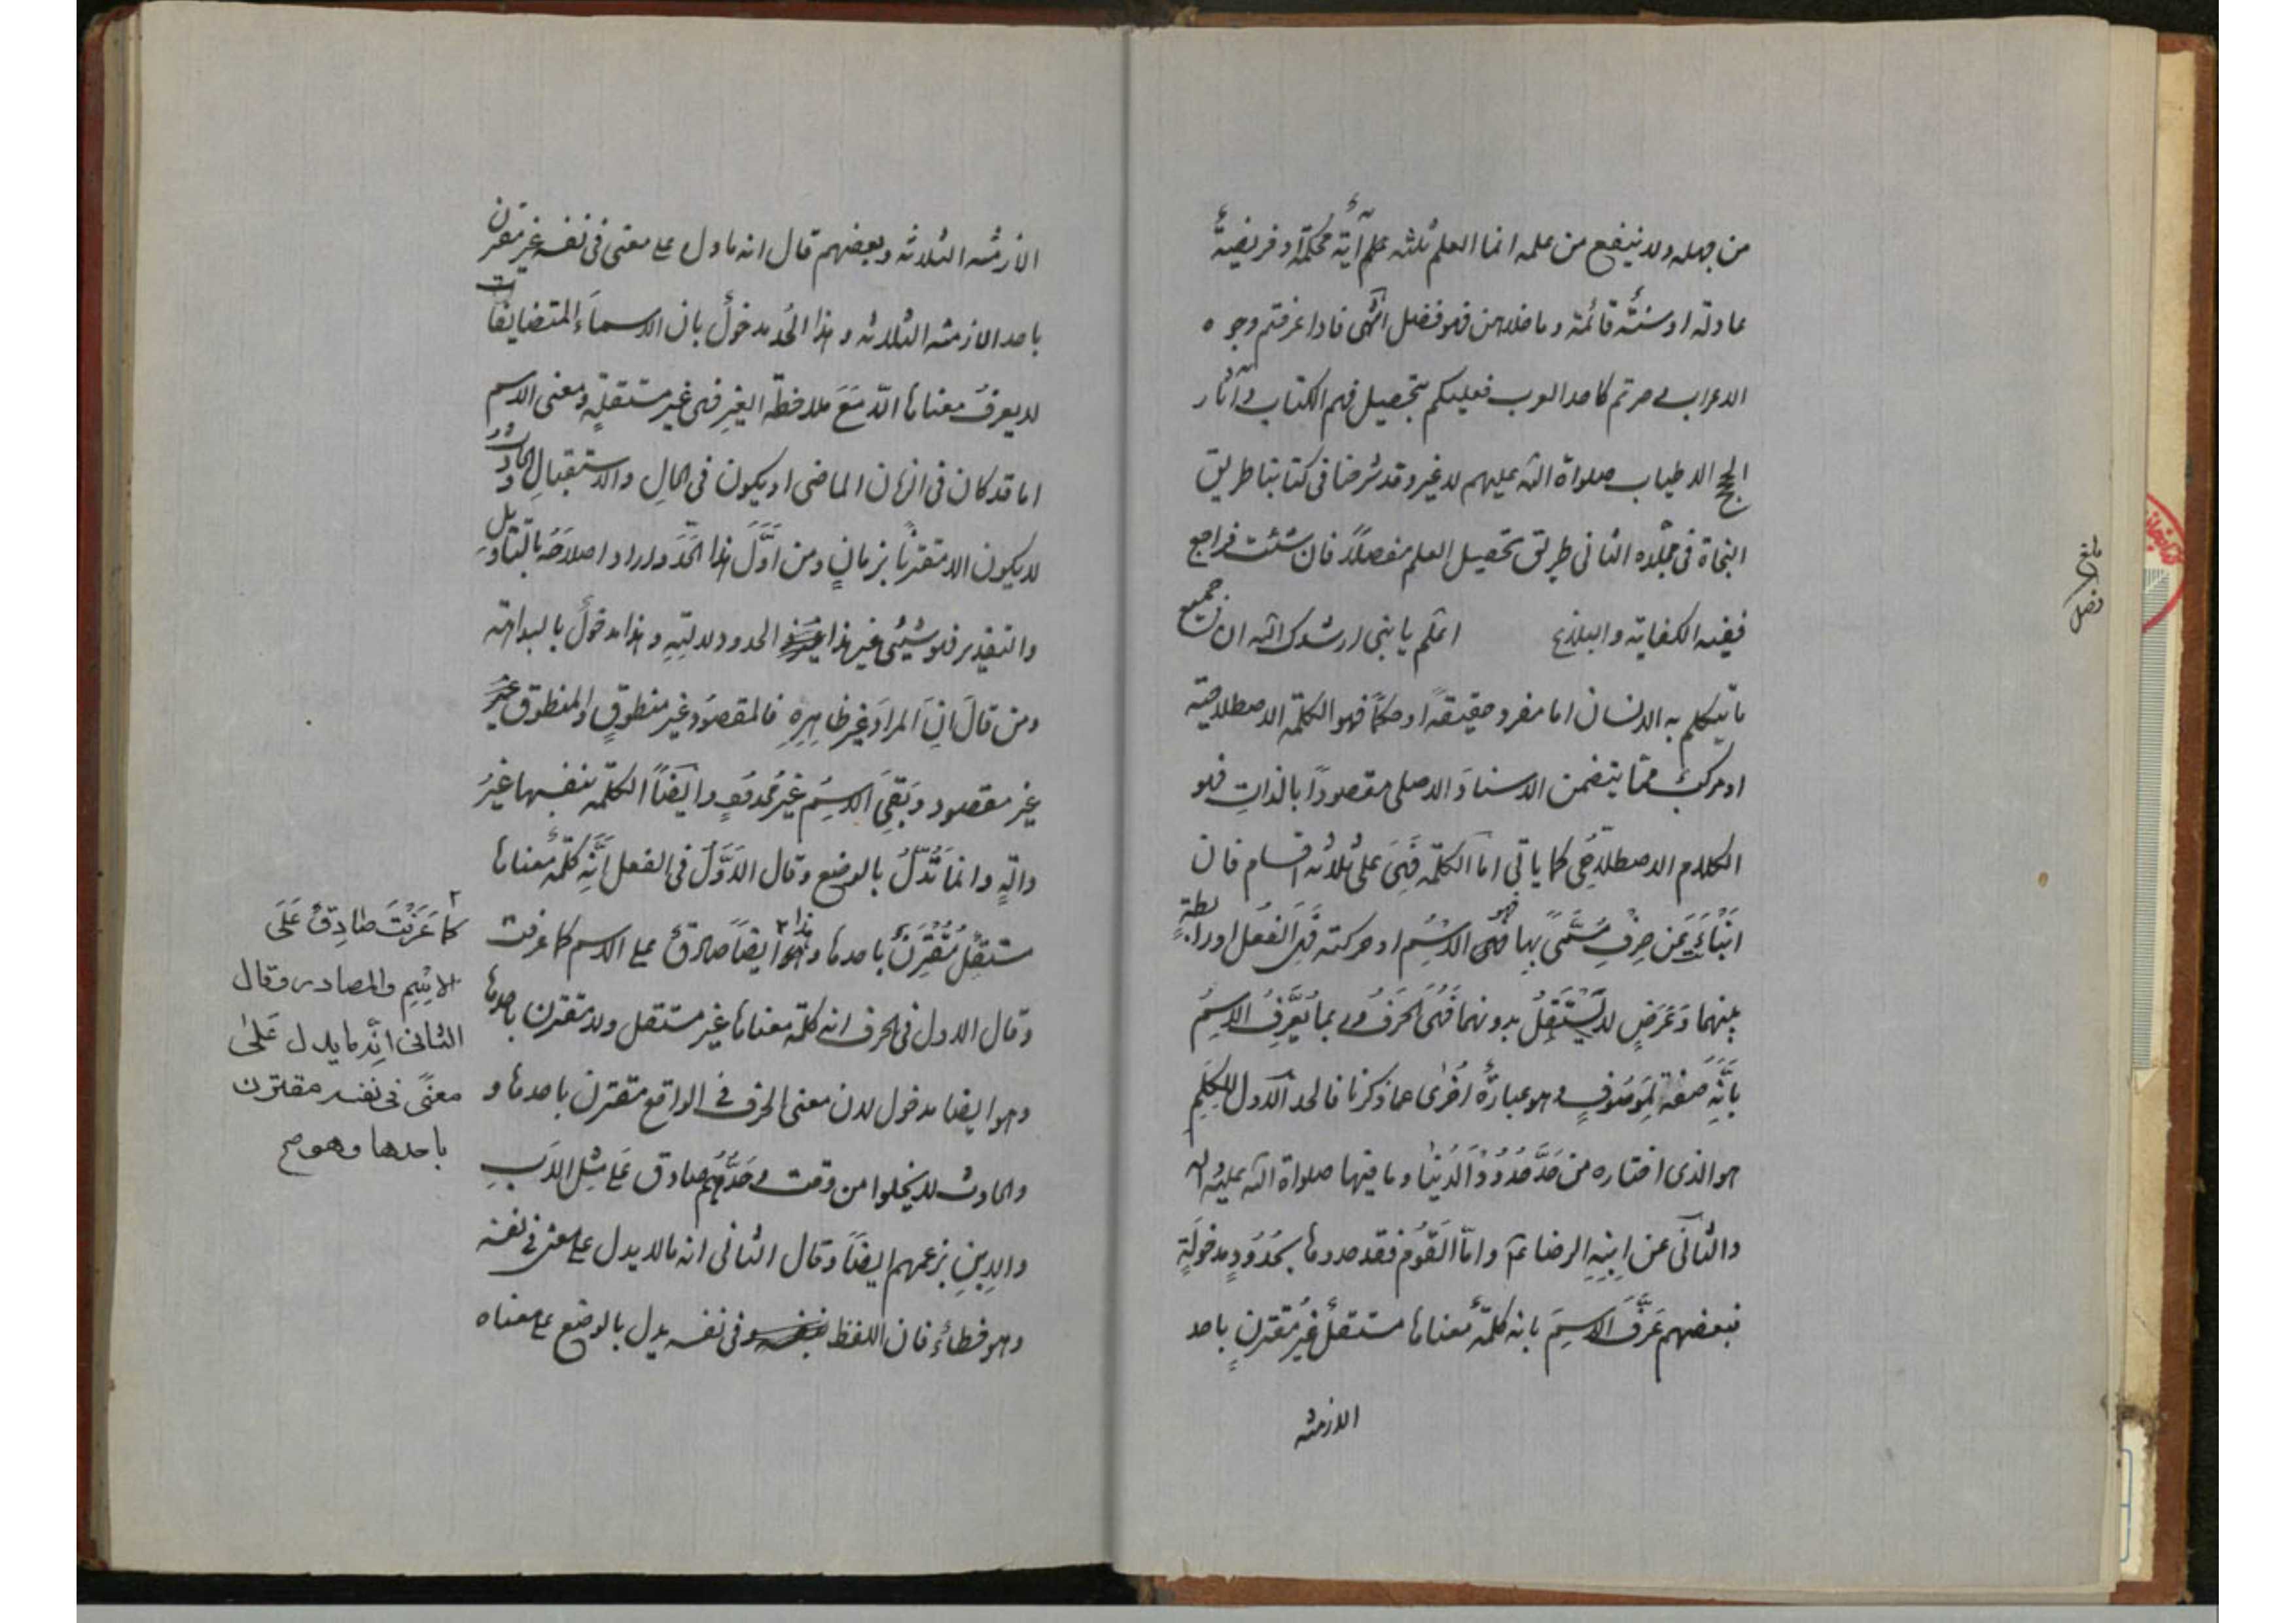 من جهله ولا ينفع من علمه انما العلم ثلثه علم آيةٌ محكمةٌ او فريضةٌ
عادلة او سنّةٌ قائمة وما خلاهن فهو فضل انتهى فاذا عرفتم وجوه
الاعراب صرتم كاحد العرب فعليكم بتحصيل فهم الكتاب وآثار
الحجج الاطياب صلواة الله عليهم لا غير وقد شرحنا فى كتابنا طريق
النجاة فى جلده الثانى طريق تحصيل العلم مفصلاً فان شئت فراجع
ففيه الكفاية والبلاغ اعلم يا بنى ارشدك الله ان جميع
ما يتكلم به الانسان اما مفرد حقيقةً او حكمًا فهو الكلمة الاصطلاحية
او مركبٌ مما يتضمن الاسنادَ الاصلى مقصودًا بالذاتِ فهو
الكلام الاصطلاحى كما ياتى اما الكلمة فهى على ثلاثه اقسام فان
انباء عن حرفِ مسمّىً بها فهو الاسمُ او حركته فهى الفعل او رابطةٍ
بينهما وعرضٍ لا يستقلُ بدونهما فهى الحرفُ وربما يُعرَّفُ الاسمُ
بانّه صفة لموصوفٍ وهو عبارةٌ اُخرٰى عما ذكرنا فالحد الاول للكلم
هو الذى اختاره من حدَّ حُدُودَ الدنيا وما فيها صلواة الله عليه وآله
والثانى عن ابنِه الرضا ع وامّا القوم فقد حدوها بحُدُودٍ مدخولةٍ
فبعضهم عرَّفَ الاسمَ بانه كلمةٌ معناها مستقلٌ غيرُ مقترنٍ باحد
الازمنه
بلغ
الازمنه الثلاثه وبعضهم قال انه ما دل على معنى فى نفسه غير مقترن
باحد الازمنه الثلاثه وهذا الحُد مدخولٌ بان الاسماءَ المتضايفات
لا يعرفُ معناها الّا مَعَ ملاحظة الغيرِ فهى غير مستقلةٍ ومعنى الاسم
اما قد كان فى الزمان الماضى او يكون فى الحالِ والاستقبالِ والحادث
لا يكون الا مقترنًا بزمانٍ ومن اوَّلَ هذا الحدَّ واراد اصلاحَهُ بالتاويل
والتقدير فهو شيئى غير هذا الحدود ولديّه وهذا مدخولٌ بالبداهة
ومن قالَ انَّ المرادَ غير ظاهِرِهِ فالمقصودُ غير منطوقٍ والمنطوق غير
غير مقصود وبَقِىَ الاسمُ غير محدودٍ وايضًا الكلمه بنفسها غيرُ
دالّهٍ وانما تَدُلُّ بالوضع وقال الاوّلُ فى الفعل اِنَّه كلمةٌ معناها
مستقلٌ مقترنٌ باحدها وهذا ايضاً صادقٌ على الاسم كما عرفت
وقال الاول فى الحرف انه كلمة معناها غير مستقل ولا مقترن باحدها
وهو ايضا مدخول لان معنى الحرف فى الواقع مقترن باحدها و
والحادث لا يخلوا من وقت وحَدُّهُم صادق على مِثلِ الابِ
والابنِ بزعمهم ايضًا وقال الثانى انه ما لا يدل على معنى فى نفسه
وهو خطاءٌ فان اللفظ فى نفسه يدل بالوضع على معناه
كما عَرَفتَ صادِقٌ عَلَى
الاسم والمصادر وقال
الثانى انّه ما يدل عَلىٰ
معنًى فى نفسه مقترن
باحدها وهو صح